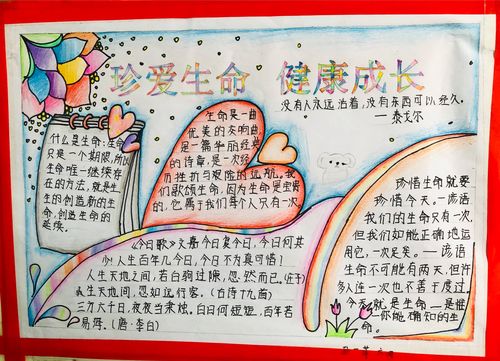 珍爱生命 健康成长
没有人永远活着,没有东西可以经久。
—泰戈尔
什么是生命:生命
只是一个期限,所以
生命唯一继续存
在的方法,就是生
生的创造新的生
命,创造生命的
延续。
生命是一曲
优美的交响曲,
是一篇华丽经典
的诗章,是一次经
历挫折与艰险的远航。我
们歌颂生命,因为生命是宝贵
的,它属于我们每个人只有一次
珍惜生命就要
珍惜今天。—谚语
我们的生命只有一次,
但我们如能正确地运
用它,一次足矣。—谚语
生命不可能有两天,但许
多人连一次也不善于度过。
今天就是生命—是谁
你能确知的生
命。
《今日歌》文嘉今日复今日,今日何其
少!人生百年几今日,今日不为真可惜!
人生天地之间,若白驹过隙,忽然而已。(庄子)
人生天地间,忽如远行客。(古诗十九首)
三万六千日,夜夜当秉烛。白日何短短,百年若
易海。(唐·李白)